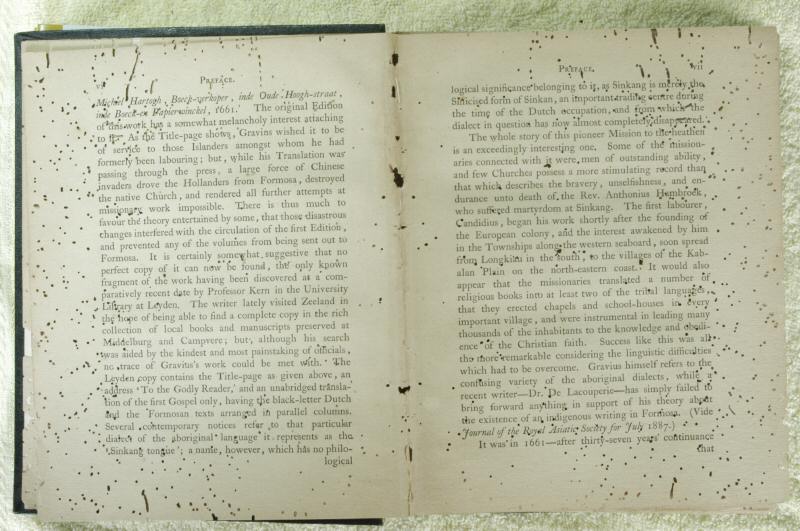 vi
PREFACE.
Michiel Hartogh, Boeck-verkoper, inde Oude Hoogh-straat,
inde Boeck-en Papierwinckel, 1661. The original Edition
of this work has a somewhat melancholy interest attaching
to it. As the Title-page shows, Gravius wished it to be
of service to those Islanders amongst whom he had
formerly been labouring; but, while his Translation was
passing through the press, a large force of Chinese
invaders drove the Hollanders from Formosa, destroyed
the native Church, and rendered all further attempts at
missionary work impossible. There is thus much to
favour the theory entertained by some, that those disastrous
changes interfered with the circulation of the first Edition,
and prevented any of the volumes from being sent out to
Formosa. It is certainly somewhat suggestive that no
perfect copy of it can now be found, the only known
fragment of the work having been discovered at a com-
paratively recent date by Professor Kern in the University
Library at Leyden. The writer lately visited Zeeland in
the hope of being able to find a complete copy in the rich
collection of local books and manuscripts preserved at
Middelburg and Campvere; but, although his search
was aided by the kindest and most painstaking of officials,
no trace of Gravius's work could be met with. The
Leyden copy contains the Title-page as given above, an
address 'To the Godly Reader,' and an unabridged transla-
tion of the first Gospel only, having the black-letter Dutch
and the Formosan texts arranged in parallel columns.
Several contemporary notices refer to that particular
dialect of the aboriginal language it represents as the
'Sinkang tongue'; a name, however, which has no philo-
logical
PREFACE.
vii
logical significance belonging to it, as Sinkang is merely the
Sinicised form of Sinkan, an important trading centre during
the time of the Dutch occupation, and from which the
dialect in question has now almost completely disappeared.
The whole story of this pioneer Mission to the heathen
is an exceedingly interesting one. Some of the mission-
aries connected with it were men of outstanding ability,
and few Churches possess a more stimulating record than
that which describes the bravery, unselfishness, and en-
durance unto death, of the Rev. Anthonius Hambroek,
who suffered martyrdom at Sinkang. The first labourer,
Candidius, began his work shortly after the founding of
the European colony, and the interest awakened by him
in the Townships along the western seaboard, soon spread
from Longkiau in the south, to the villages of the Kab-
alan Plain on the north-eastern coast. It would also
appear that the missionaries translated a number of
religious books into at least two of the tribal languages,
that they erected chapels and school-houses in every
important village, and were instrumental in leading many
thousands of the inhabitants to the knowledge and obedi-
ence of the Christian faith. Success like this was all
the more remarkable considering the linguistic difficulties
which had to be overcome. Gravius himself refers to the
confusing variety of the aboriginal dialects, while a
recent writer—Dr. De Lacouperie—has simply failed to
bring forward anything in support of his theory about
the existence of an indigenous writing in Formosa. (Vide
Journal of the Royal Asiatic Society for July 1887.)
It was in 1661—after thirty-seven years' continuance
that